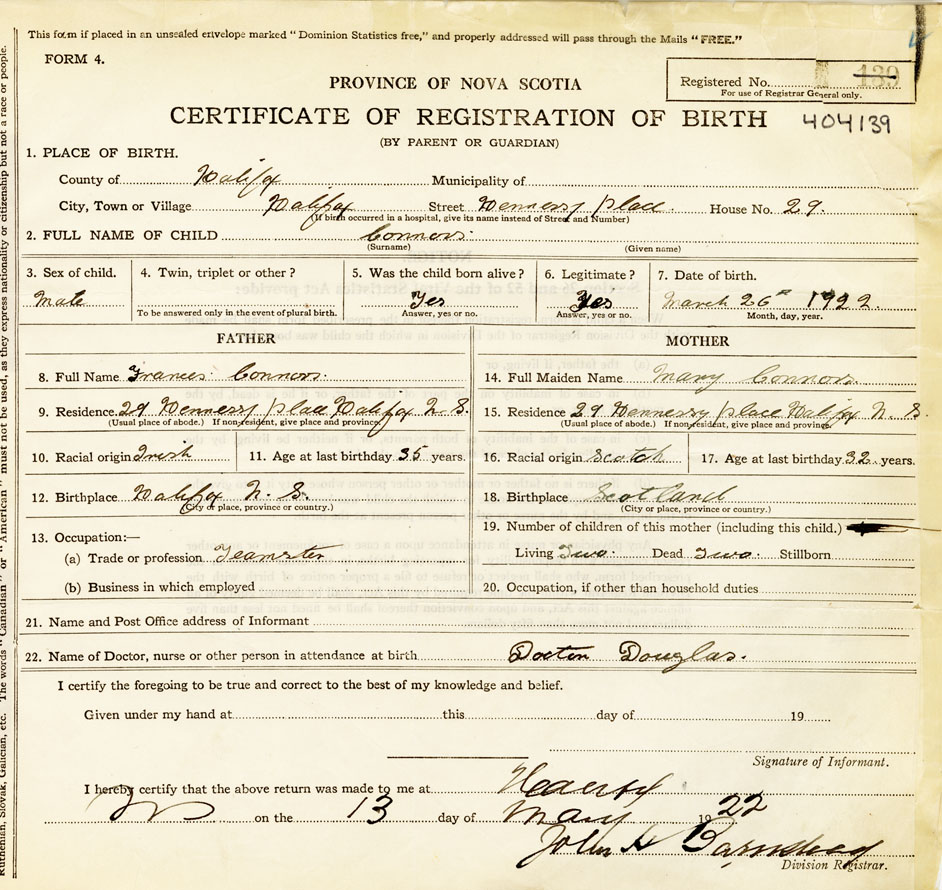 This form if placed in an unsealed envelope marked "Dominion Statistics free," and properly addressed will pass through the Mails "FREE."
FORM 4.
PROVINCE OF NOVA SCOTIA
Registered No. 139
For use of Registrar General only.
CERTIFICATE OF REGISTRATION OF BIRTH 404139
(BY PARENT OR GUARDIAN)
1. PLACE OF BIRTH.
County of Halifax Municipality of
City, Town or Village Halifax Street Hennessy place House No. 29.
(If birth occurred in a hospital, give its name instead of Street and Number)
2. FULL NAME OF CHILD Connors
(Surname) (Given name)
3. Sex of child. 4. Twin, triplet or other? 5. Was the child born alive? 6. Legitimate? 7. Date of birth.
Male Yes Yes March 26th 1922.
To be answered only in the event of plural birth. Answer, yes or no. Answer, yes or no. Month, day, year.
FATHER MOTHER
8. Full Name Frances Connors. 14. Full Maiden Name Mary Connors.
9. Residence 29 Hennessy place Halifax N. S. 15. Residence 29 Hennessy place Halifax N. S.
(Usual place of abode.) If nonresident, give place and province (Usual place of abode.) If nonresident, give place and province
10. Racial origin Irish 11. Age at last birthday 35 years. 16. Racial origin Scotch 17. Age at last birthday 32. years.
12. Birthplace Halifax N. S. 18. Birthplace Scotland
(City or place, province or country.) (City or place, province or country.)
19. Number of children of this mother (including this child.)
13. Occupation:—
(a) Trade or profession Teamster Living Two. Dead Two. Stillborn
(b) Business in which employed 20. Occupation, if other than household duties
21. Name and Post Office address of Informant
22. Name of Doctor, nurse or other person in attendance at birth Doctor Douglas.
I certify the foregoing to be true and correct to the best of my knowledge and belief.
Given under my hand at this day of 19
Signature of Informant.
I hereby certify that the above return was made to me at
on the 13 day of May 1922
John H Barnstead
Division Registrar.
Ruthenian, Slovak, Galician, etc. The words "Canadian" or "American" must not be used, as they express nationality or citizenship but not a race or people.